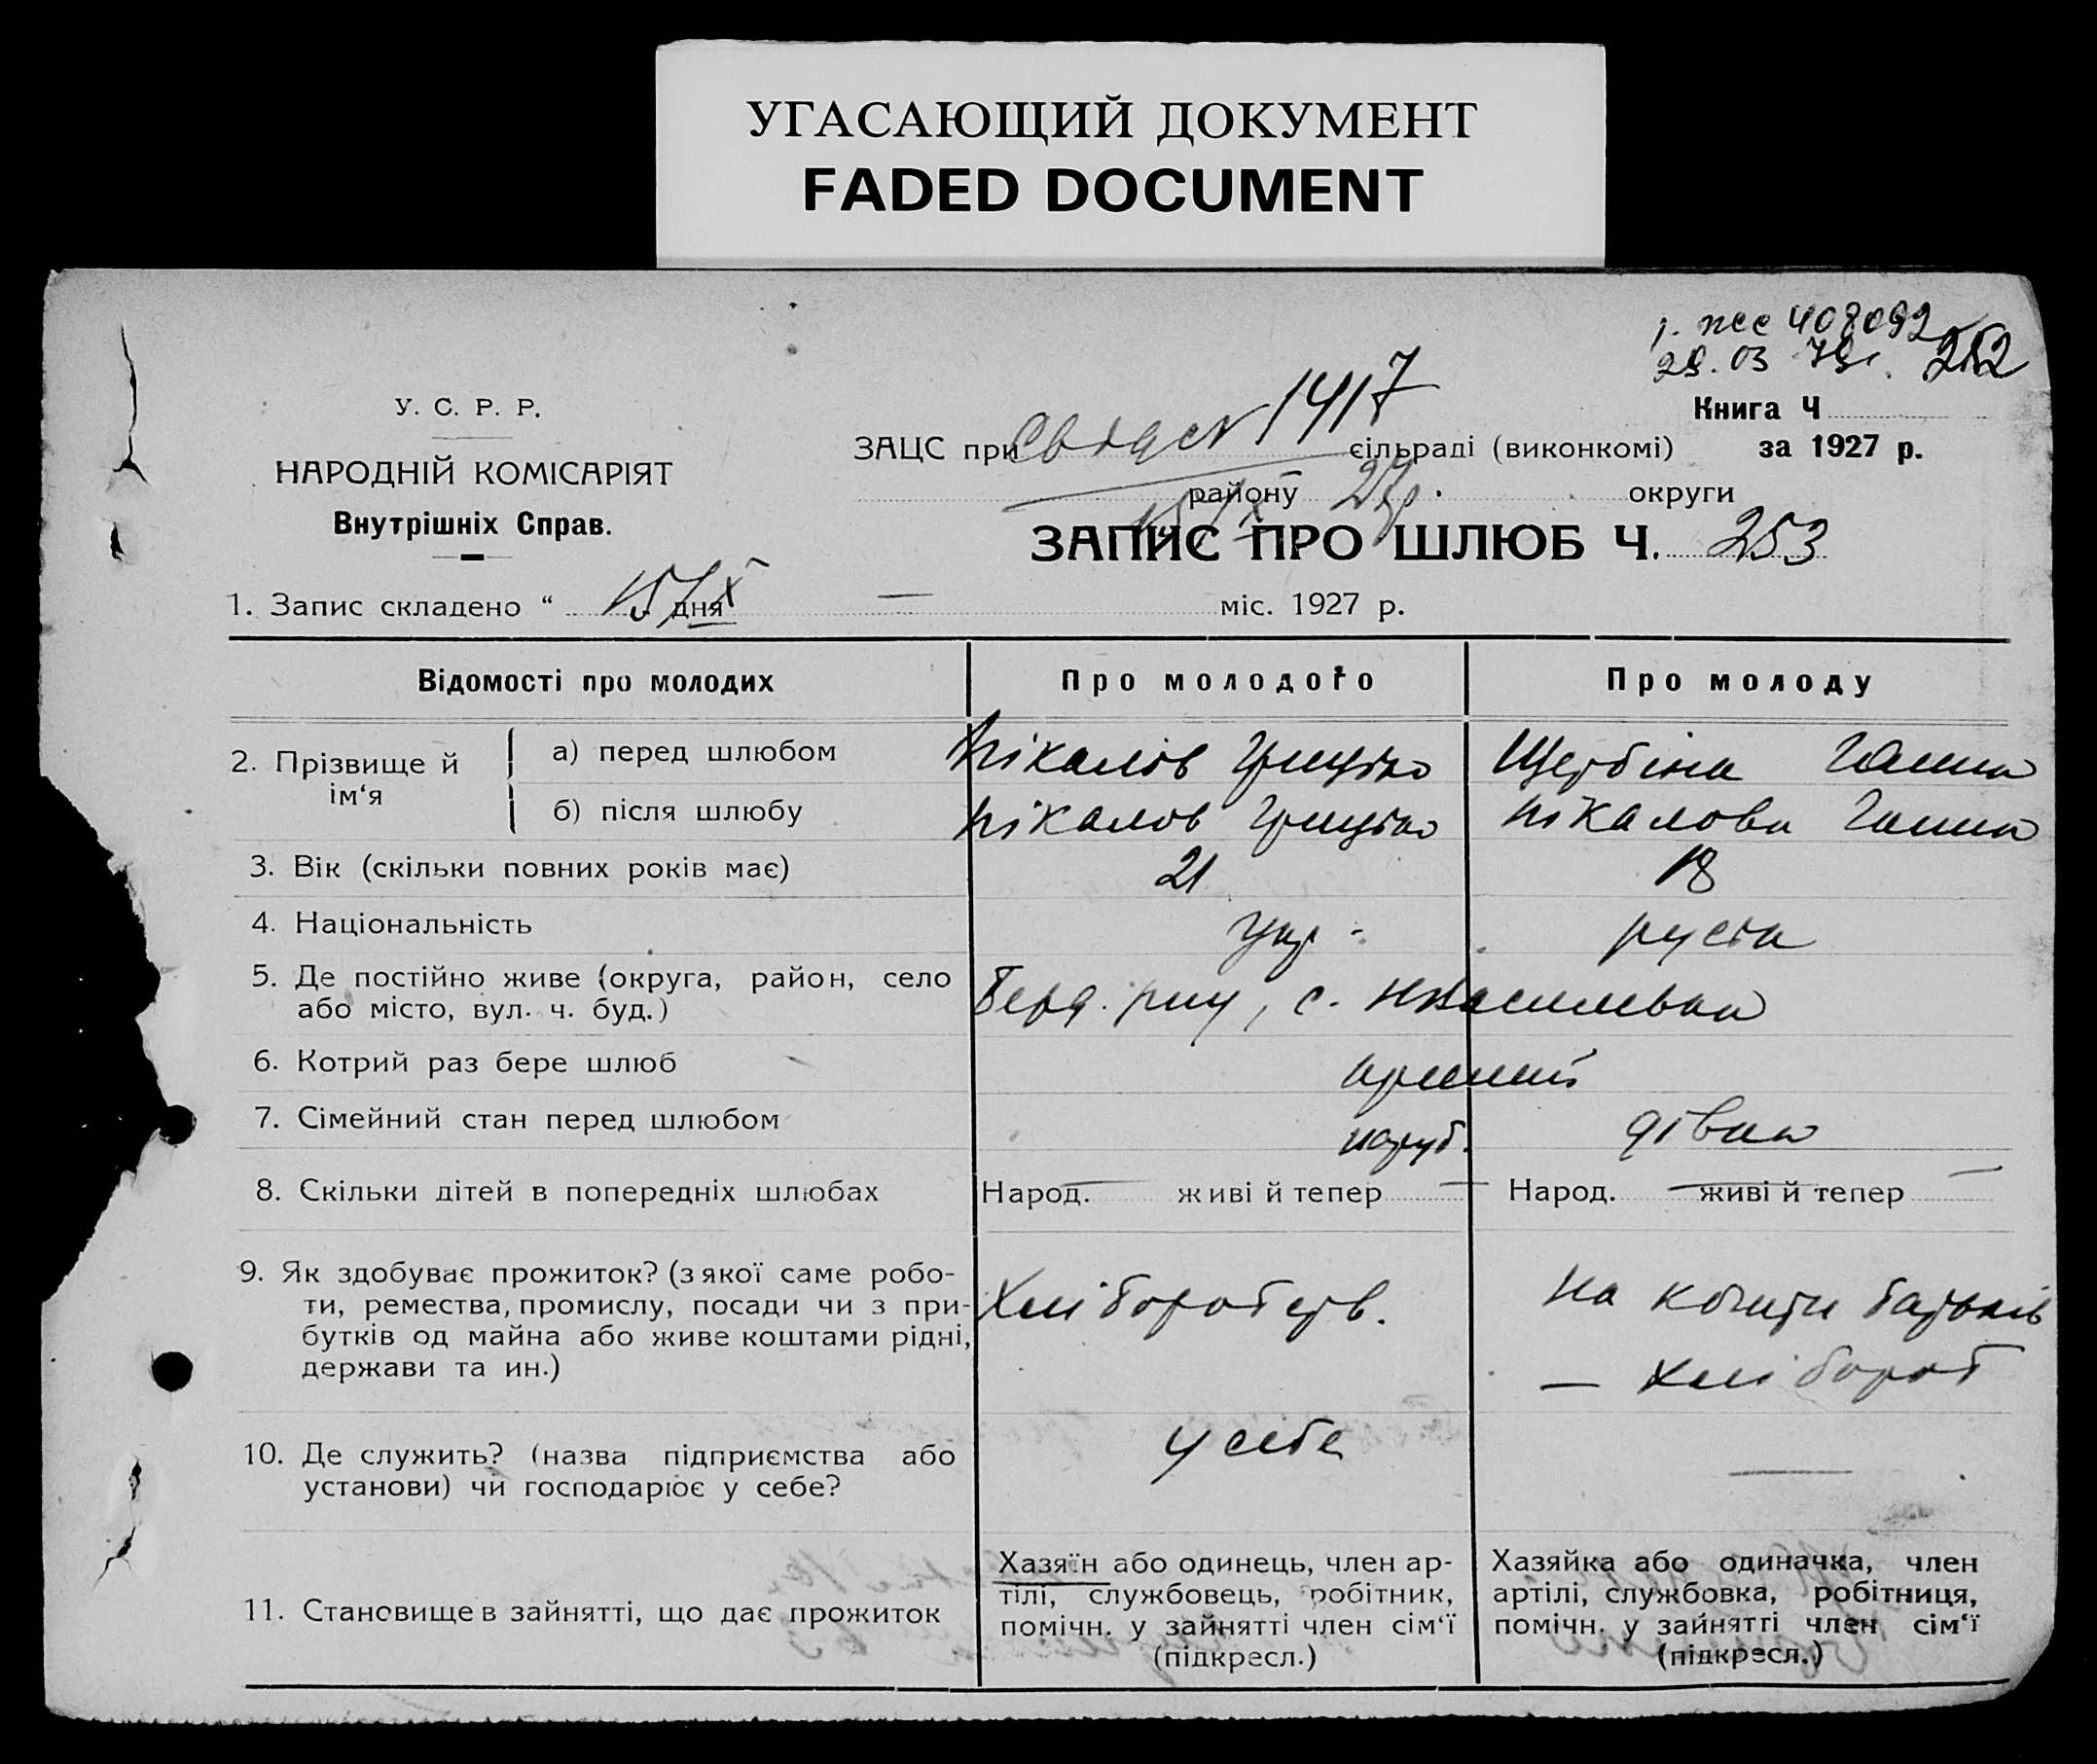 УГАСАЮЩИЙ ДОКУМЕНТ
FADED DOCUMENT
408092
29.03 79г. 252
У. С. Р. Р.
НАРОДНІЙ КОМІСАРІЯТ
Внутрішніх Справ.
Книга Ч
ЗАЦС при 1417 сільраді (виконкомі) за 1927 р.
району округи
ЗАПИС ПРО ШЛЮБ Ч. 253
1. Запис складено “ 15/X дня — міс. 1927 р.
Відомості про молодих Про молодого Про молоду
2. Прізвище й ім‘я
а) перед шлюбом Пікалов Грицько Щербіна Ганна
б) після шлюбу Пікалов Грицько Пікалова Ганна
3. Вік (скільки повних років має) 21 18
4. Національність Укр. руська
5. Де постійно живе (округа, район, село
або місто, вул. ч. буд.) Берд. с.
6. Котрий раз бере шлюб перший
7. Сімейний стан перед шлюбом паруб. дівка
8. Скільки дітей в попередніх шлюбах Народ. — живі й тепер — Народ. — живі й тепер —
9. Як здобуває прожиток? (з якої саме робо-
ти, ремества, промислу, посади чи з при-
бутків од майна або живе коштами рідні,
держави та ин.)
Хліборобств.
на кошти батьків
— хлібороб
10. Де служить? (назва підприємства або
установи) чи господарює у себе?
у себе
—
11. Становище в зайнятті, що дає прожиток
Хазяїн або одинець, член ар-
тілі, службовець, робітник,
помічн. у зайнятті член сім‘ї
(підкресл.)
Хазяйка або одиначка, член
артілі, службовка, робітниця,
помічн. у зайнятті член сім‘ї
(підкресл.)